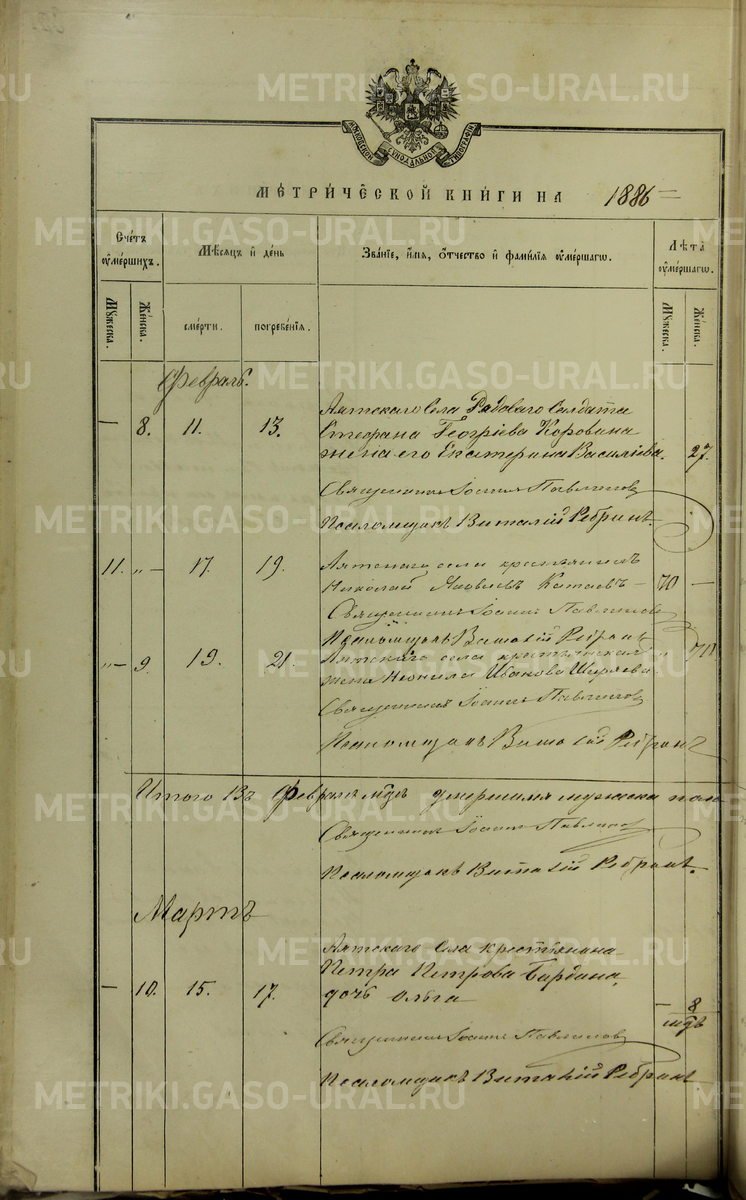 METRIKI.GASO-URAL.RU
МОСКОВСКОЙ СѴНОДАЛЬНОЙ ТИПОГРАФІИ
МЕТРИЧЕСКОЙ КНИГИ НА 1886
Счетъ оумершихъ.
Мѣсяцъ и день
Званіе, имя, отчество и фамилія оумершаго.
Лѣта оумершаго.
Мужеска.
Женска.
смерти.
погребенія.
Мужеска.
Женска.
Февраль.
Аятскаго села Рядоваго Солдата
— 8. 11. 13. Стефана Георгіева Корована
жена его Екатерина Василіева. 27.
Священникъ Іоаннъ Павлиновъ
Псаломщикъ Виталій Ребринъ
11. „ — 17. 19. Аятскаго села крестьянинъ
Николай Яковлевъ Катаевъ — 70 —
Священникъ Іоаннъ Павлиновъ
Псаломщикъ Виталій Ребринъ
„ — 9. 19. 21. Аятскаго села крестьянская „ 70
жена Неонила Исакова Ширяева
Священникъ Іоаннъ Павлиновъ
Псаломщикъ Виталій Ребринъ
Итого въ Февралѣ мцѣ умершихъ мужеска пола
Священникъ Іоаннъ Павлиновъ
Псаломщикъ Виталій Ребринъ.
Мартъ
Аятскаго села крестьянина
Петра Петрова Бардина
— 10. 15. 17. дочь Ольга — 8 мцѣ
Священникъ Іоаннъ Павлиновъ
Псаломщикъ Виталій Ребринъ